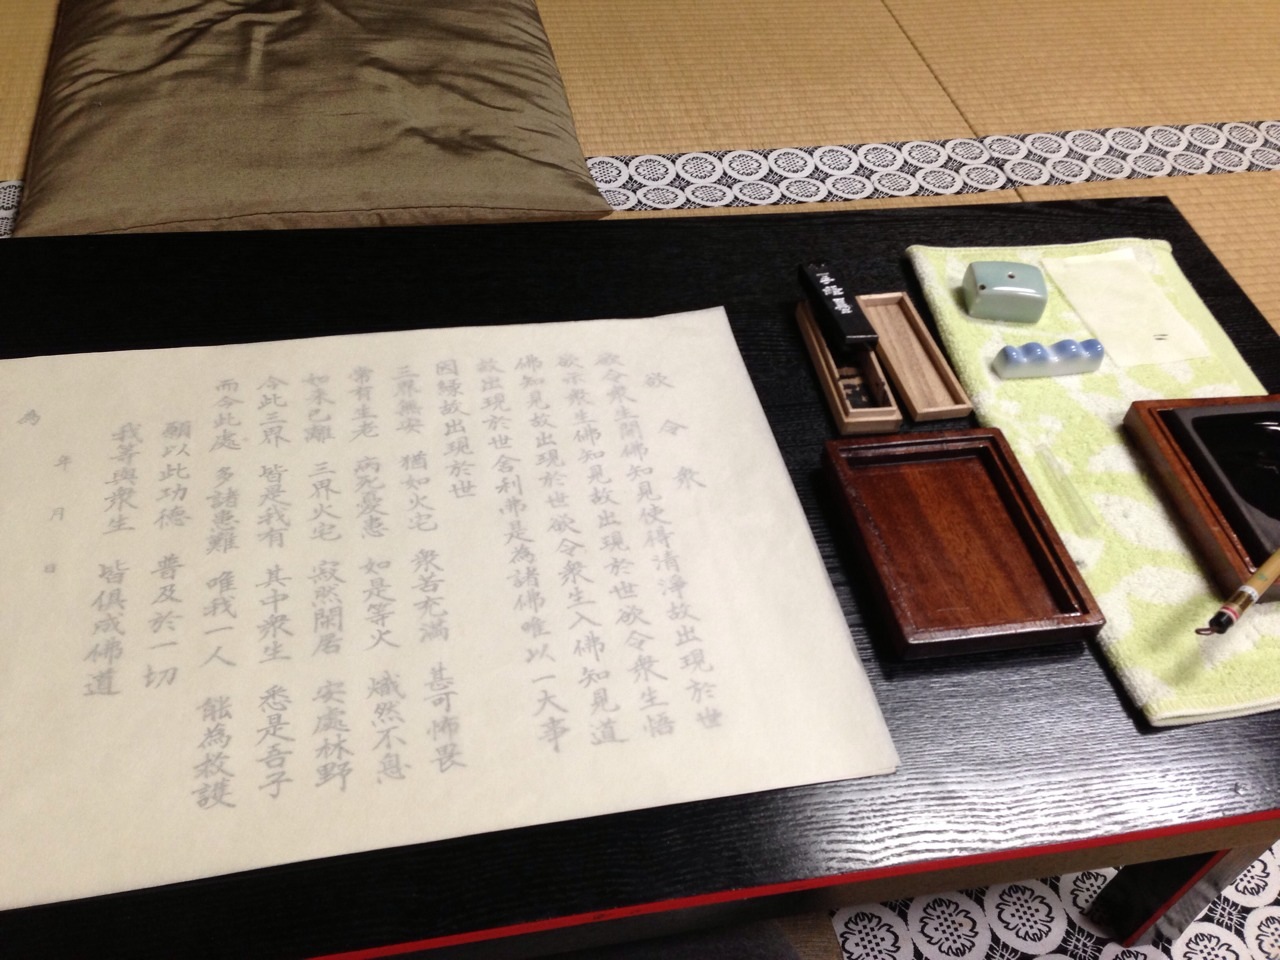 欲令衆
欲令衆生開佛知見使得清淨故出現於世
欲示衆生佛知見故出現於世欲令衆生悟
佛知見故出現於世欲令衆生入佛知見道
故出現於世舍利弗是為諸佛唯以一大事
因縁故出現於世
三界無安 猶如火宅 衆苦充滿 甚可怖畏
常有生老 病死憂患 如是等火 熾然不息
如来已離 三界火宅 寂然閑居 安處林野
今此三界 皆是我有 其中衆生 悉是吾子
而今此處 多諸患難 唯我一人 能為救護
願以此功徳 普及於一切
我等與衆生 皆俱成佛道
年 月 日
為